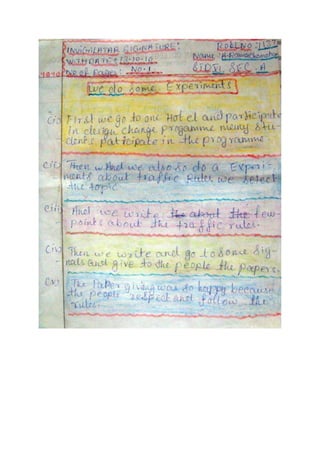 INVIGILATAR SIGNATURE:
ROLL NO:
WITH DATE: 23-10-10
Name:
No of Pages: No. 1
SEC - A
We do Some Experiments
(i) First we go to one Hotel and participate
in design change progamme meny Stu-
dents participate in the programme.
(ii) Then wAnd we also so do a Experi-
ments about traffic Rules we select
the topic
(iii) And we write the about the few
points about the traffic rules-
(iv) Then we write and go to some sig-
nals and give to the people the papers.
(v) The later giving was so happy because
the people respect and follow the
rules.